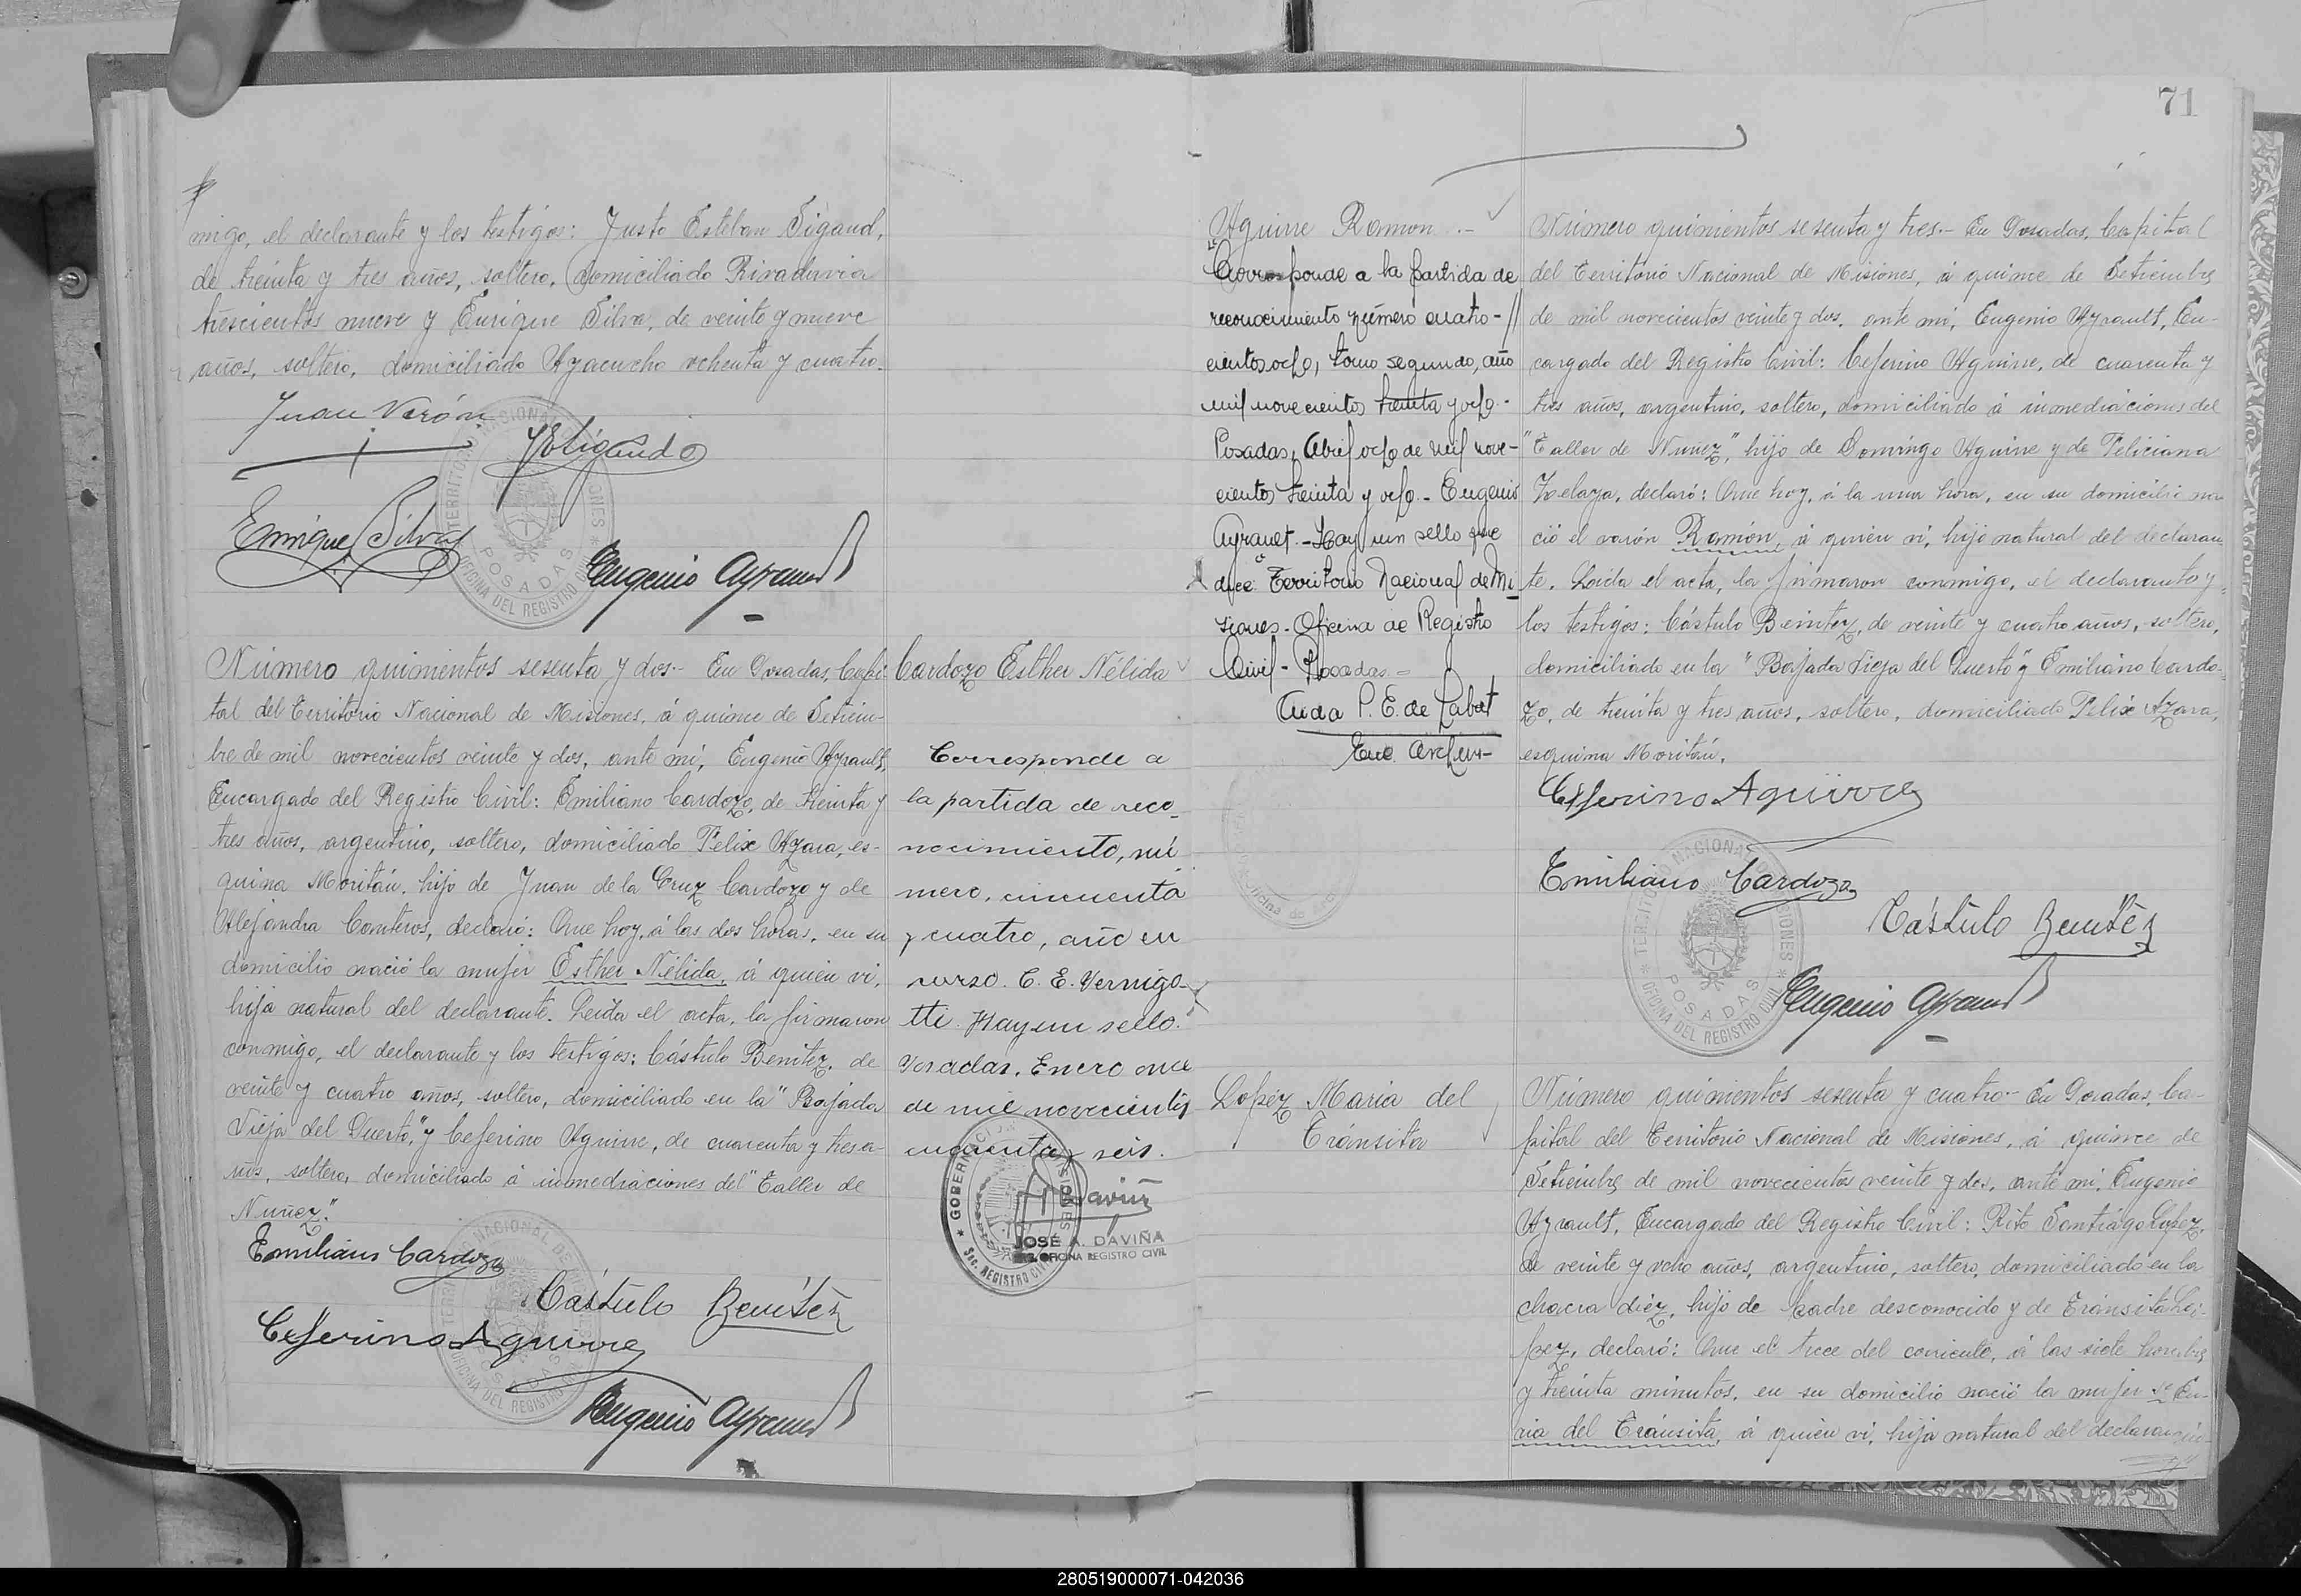 migo, el declarante y los testigos: Justo Esteban Sigaud,
de treinta y tres años, soltero, domiciliado Rivadavia
trescientos nueve y Enrique Silva, de veinte y nueve
años, soltero, domiciliado Ayacucho ochenta y cuatro.
Juan Verón
JESigaud
Enrique Silva
Eugenio Ayrault
Número quinientos sesenta y dos.- En Posadas, Capi-
tal del Territorio Nacional de Misiones, á quince de Setiem-
bre de mil novecientos veinte y dos, ante mí, Eugenio Ayrault,
Encargado del Registro Civil: Emiliano Cardozo, de treinta y
tres años, argentino, soltero, domiciliado Felix Azara, es-
quina Moritán, hijo de Juan de la Cruz Cardozo y de
Alejandra Conteros, declaró: Que hoy, á las dos horas, en su
domicilio nació la mujer Esther Nélida, á quien vi,
hija natural del declarante. Leida el acta, la firmaron
conmigo, el declarante y los testigos: Cástulo Benitez, de
veinte y cuatro años, soltero, domiciliado en la "Bajada
Vieja del Puerto," y Ceferino Aguirre, de cuarenta y tres a-
ños, soltero, domiciliado á inmediaciones del "Taller de
Nuñez."
Emiliano Cardozo
Cástulo Benítez
Ceferino Aguirre
Eugenio Ayrault
Cardozo Esther Nélida
Corresponde a
la partida de reco-
nocimiento, nú
mero, cincuenta
y cuatro, año en
curso. C. E. Vernigo-
tti. Hay un sello.
Posadas, Enero once
de mil novecientos
cincuenta y seis.
JOSÉ A. DAVIÑA
OFICINA REGISTRO CIVIL
71
Aguirre Ramon.-
Corresponde a la partida de
reconocimiento número cuatro-
cientos ocho, tomo segundo, año
mil novecientos treinta y ocho.-
Posadas, Abril ocho de mil nove-
cientos treinta y ocho.- Eugenio
Ayrault.- Hay un sello que
dice: Territorio Nacional de Mi
siones.- Oficina de Registro
Civil- Posadas.=
Aida P. E. de Labat
Enc. Archivo-
Número quinientos sesenta y tres.- En Posadas, Capital
del Territorio Nacional de Misiones, á quince de Setiembre
de mil novecientos veinte y dos, ante mí, Eugenio Ayrault, En-
cargado del Registro Civil: Ceferino Aguirre, de cuarenta y
tres años, argentino, soltero, domiciliado á inmediaciones del
"Taller de Nuñez", hijo de Domingo Aguirre y de Feliciana
Zelaya, declaró: Que hoy, á la una hora, en su domicilio na-
ció el varón Ramón, á quien vi, hijo natural del declaran-
te. Leida el acta, la firmaron conmigo, el declarante y
los testigos: Cástulo Benitez, de veinte y cuatro años, soltero,
domiciliado en la "Bajada Vieja del Puerto" y Emiliano Cardo-
zo, de treinta y tres años, soltero, domiciliado Felix Azara,
esquina Moritán.
Ceferino Aguirre
Emiliano Cardozo
Cástulo Benítez
Eugenio Ayrault
Lopez Maria del
Tránsita
Número quinientos sesenta y cuatro- En Posadas, Ca-
pital del Territorio Nacional de Misiones, á quince de
Setiembre de mil novecientos veinte y dos, ante mí, Eugenio
Ayrault, Encargado del Registro Civil: Rito Santiago Lopez,
de veinte y ocho años, argentino, soltero, domiciliado en la
chacra diez, hijo de padre desconocido y de Tránsita Ló-
pez, declaró: Que el trece del corriente, á las siete horas
y treinta minutos, en su domicilio nació la mujer
ria del Tránsita, á quien vi, hija natural del declarante
280519000071-042036